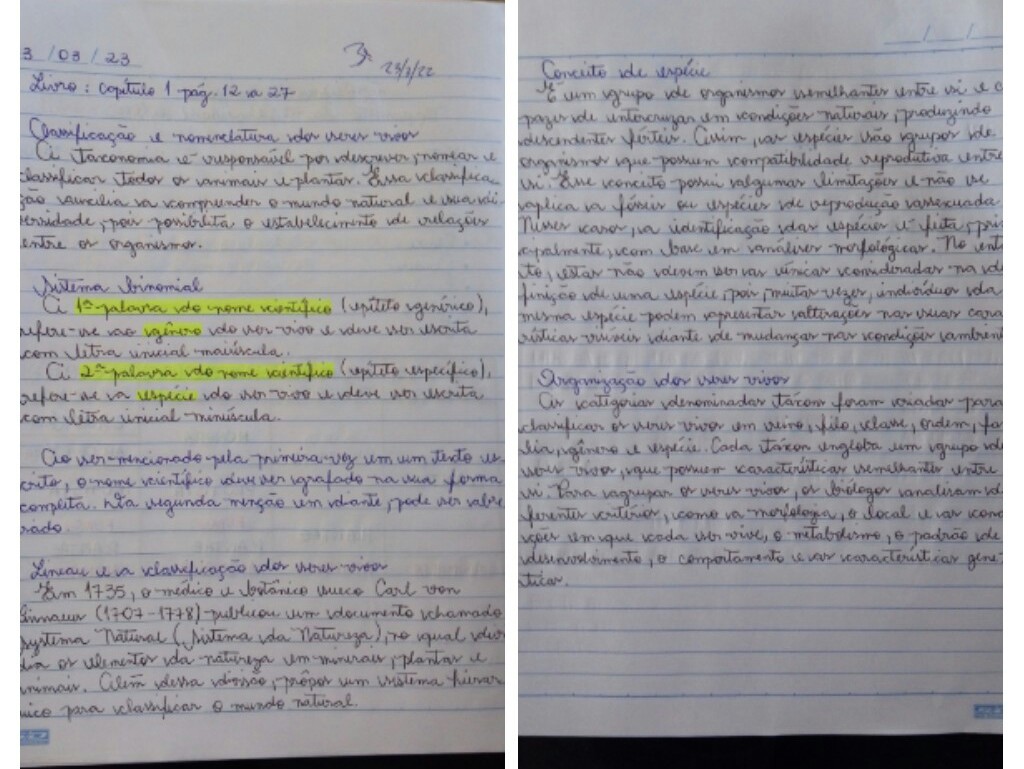 3 / 03 / 23
23/3/22
Livro: capítulo 1 pág. 12 a 27
Classificação e nomenclatura dos seres vivos
A taxonomia é responsável por descrever, nomear e
classificar todos os animais e plantas. Essa classifica-
ção auxilia a compreender o mundo natural e sua di
ersidade, pois possibilita o estabelecimento de relações
entre os organismos.
Sistema binomial
A 1ª palavra do nome científico (epíteto genérico),
refere-se ao gênero do ser vivo e deve ser escrita
com letra inicial maiúscula.
A 2ª palavra do nome científico (epíteto específico),
refere-se a espécie do ser vivo e deve ser escrita
com letra inicial minúscula.
Ao ser mencionado pela primeira vez em um texto es
crito, o nome científico deve ser grafado na sua forma
completa. Na segunda menção em diante, pode ser abre
viado.
Lineau e a classificação dos seres vivos
Em 1735, o médico e botânico sueco Carl von
Linnaeus (1707-1778) publicou um documento chamado
Systema Natural (Sistema da Natureza), no qual divi
dia os elementos da natureza em minerais, plantas e
animais. Além dessa divisão, propôs um sistema hierár
uico para classificar o mundo natural.
Conceito de espécie
É um grupo de organismos semelhantes entre si e c
pazes de intercruzar em condições naturais, produzindo
descendentes férteis. Assim, as espécies são grupos de
organismos que possuem compatibilidade reprodutiva entre
si. Esse conceito possui algumas limitações e não se
aplica a fósseis ou espécies de reprodução assexuada
Nesses casos, a identificação das espécies é feita, prin
cipalmente, com base em análises morfológicas. No ent
to, estas não devem ser as únicas consideradas na de
finição de uma espécie, pois, muitas vezes, indivíduos da
mesma espécie podem apresentar alterações nas suas cara
rísticas visíveis diante de mudanças nas condições ambien
Organização dos seres vivos
As categorias denominadas táxons foram criadas para
classificar os seres vivos em reino, filo, classe, ordem, fa
lia, gênero e espécie. Cada táxon engloba um grupo de
seres vivos, que possuem características semelhantes entre
si. Para agrupar os seres vivos, os biólogos analisam di
ferentes critérios, como a morfologia, o local e as cond
ições em que cada ser vive, o metabolismo, o padrão de
desenvolvimento, o comportamento e as características gené-
ticas.